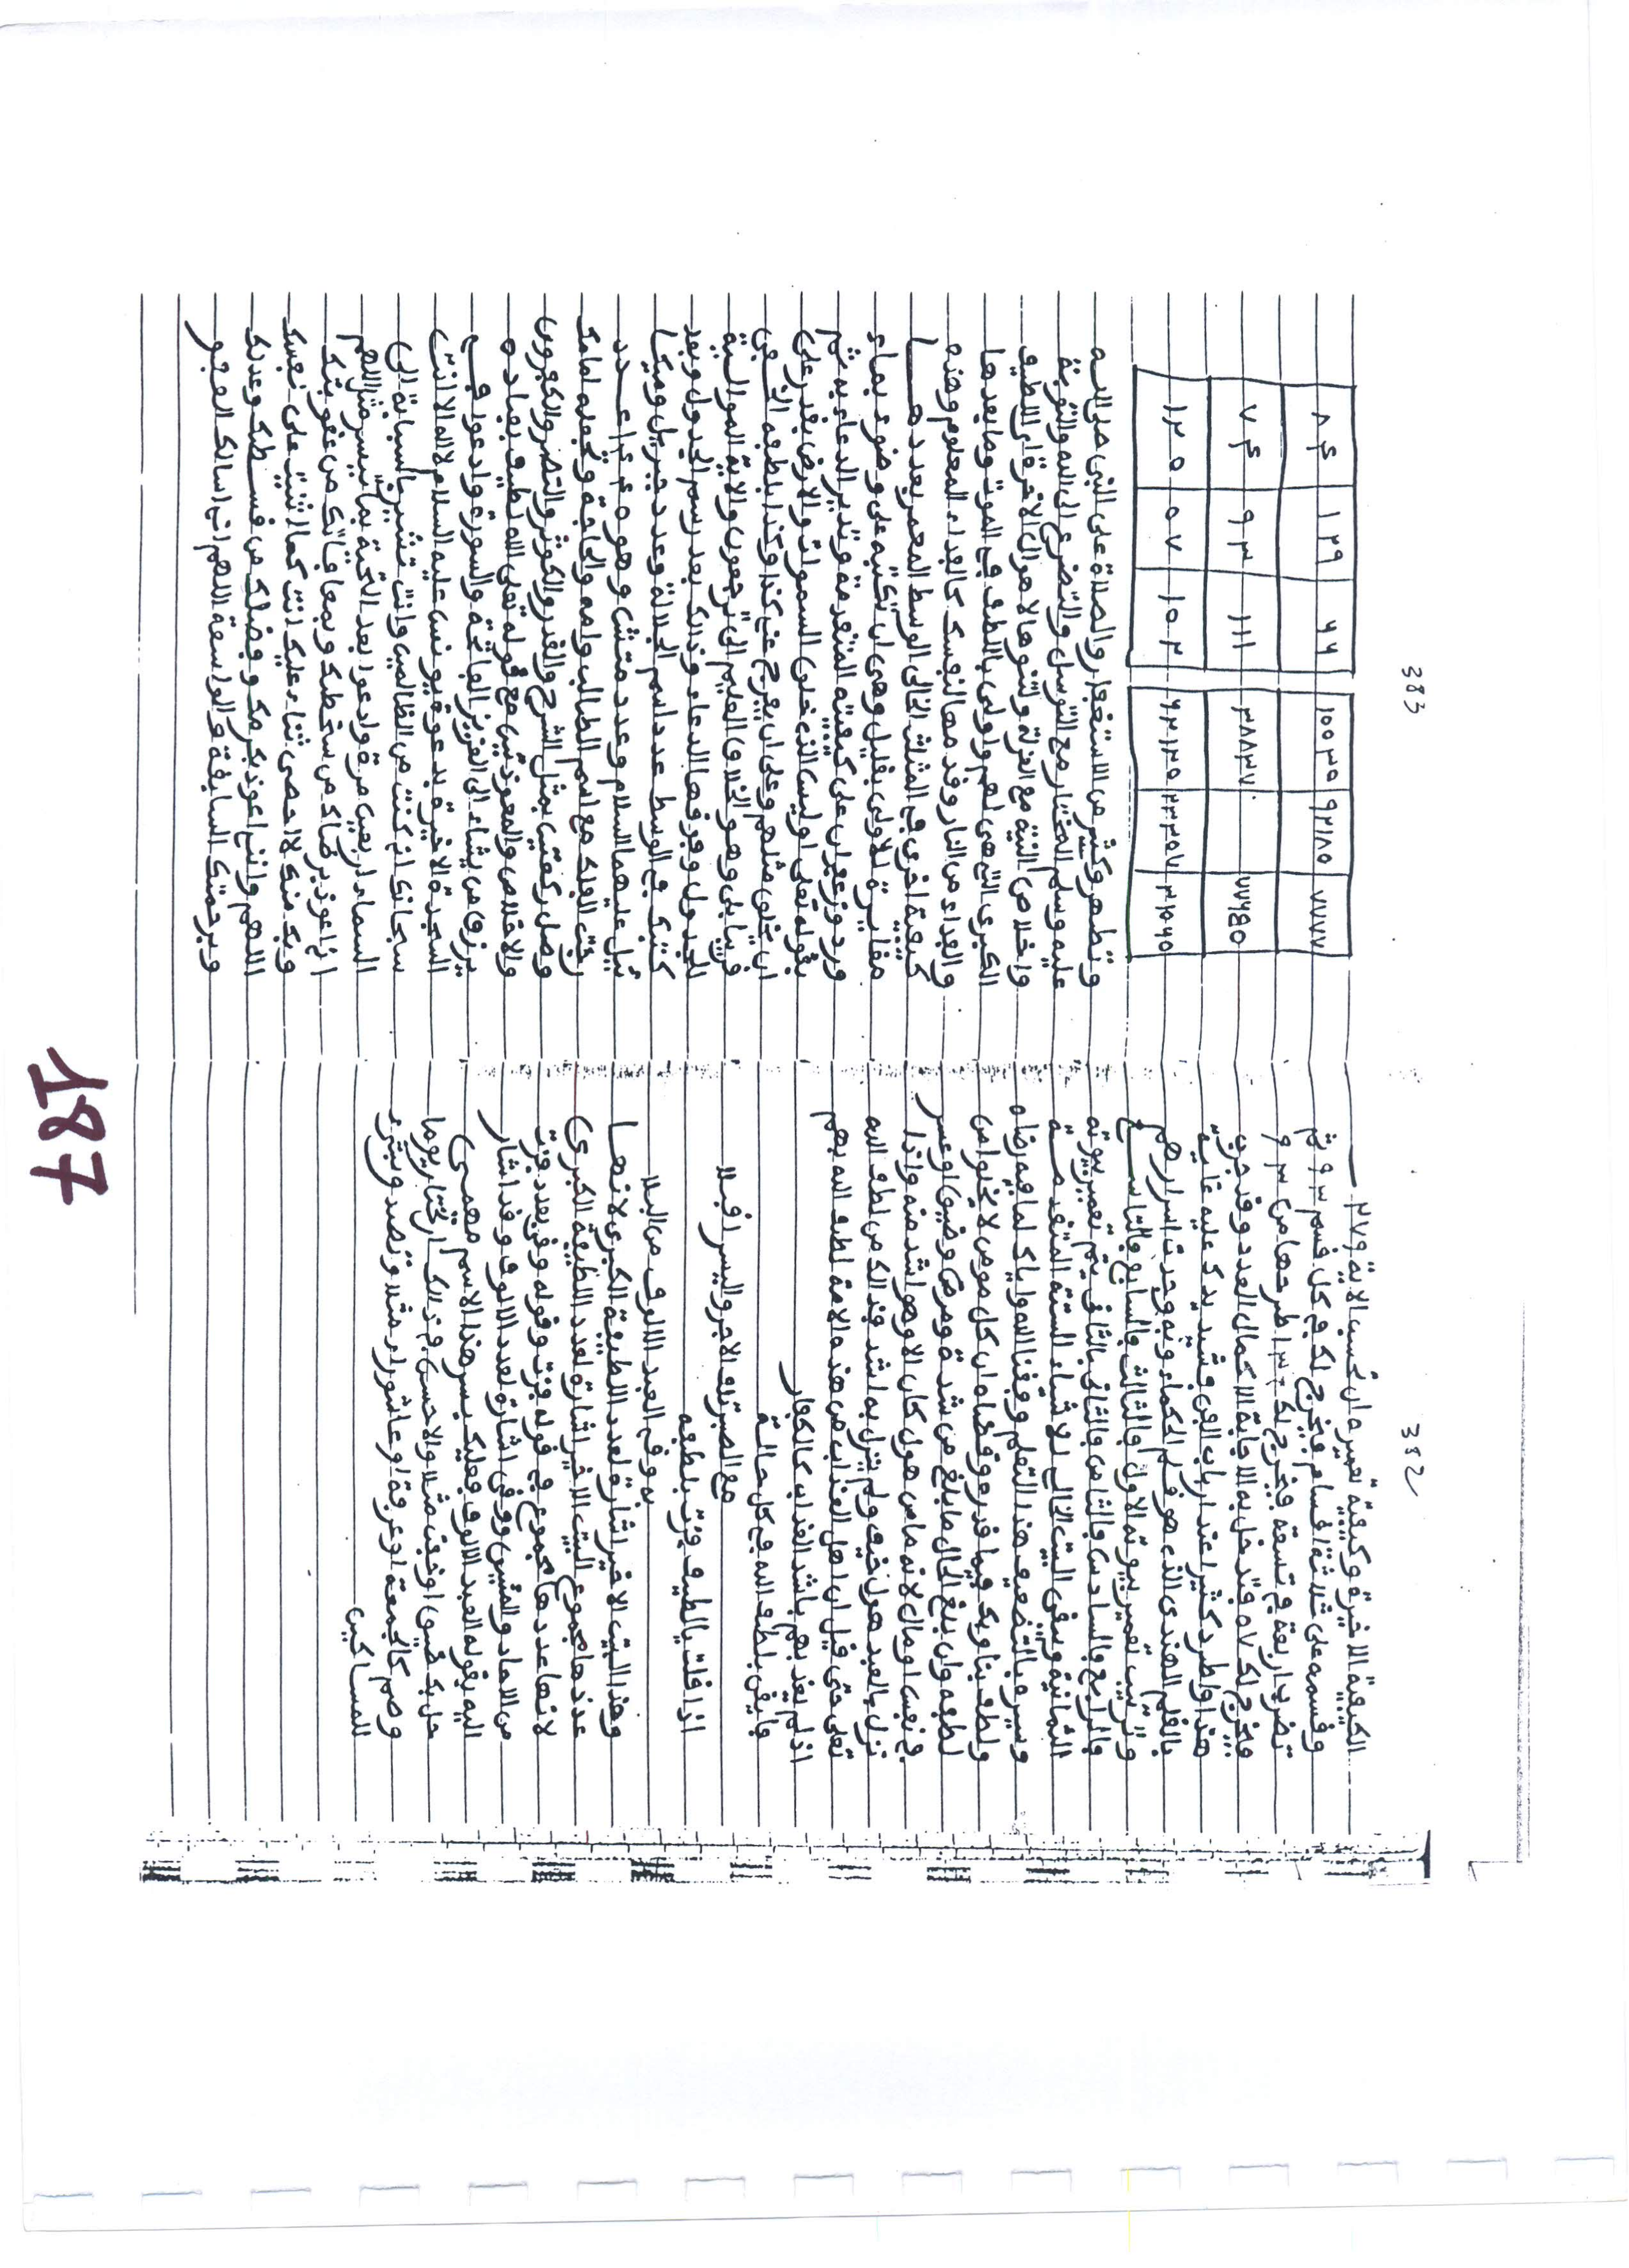 382
الكيفية الاخيرة وكيفية تعميره ان تحسب الاية
وقسمه على ثلاثة اقسام فيخرج لك في كل قسم ٩٣ ثم
تضرب اربعة في تسعة فيخرج لك ٣٦ اطرحها من ٩٣
فيخرج لك ٥٧ فتدخل به العدد وقد جرب
هذا واطرد كثيرا عند ارباب الفن فشد يدك عليه غاية
بالقلم الهندي الذي هو قلم الحكماء وبه وجدت اسرارهم
وترتيب تعمير بيوته الاول والثالث والسابع والتاسع
والرابع والسادس والثامن والثاني ثم تعمير بيوته
الثمانية ويبقى البيت الخالي لاشياء الستة المتقدمة
وسيره بالتضعيف هذا التعلم وفقنا الله واياك لما فيه رضاه
ولطف بنا وبك فيما قدره وقضاه وان كل مومن لا يخلو من
لطفه وان بلغ الحال ما بلغ من شدة ومرض وضيق او عسر
في نفس او مال لانه ما من هول كان الا وهو اشد منه واذا
نزل بالعبد هول خفيف ولم ينزل به اشد فذالك من لطف الله
تعلى حتى قيل ان اهل العذاب من هذه الامة لطف الله بهم
اذ لم يعذبهم باشد العذاب كالكفار
وايقن بلطف الله في كل حالة
مع الصبر تلق الاجر واليسر اقبلا
اذا قلت يا لطيف فزت بلطفه
به وق العبد الالوف من البلا
وهذا البيت الاخير اشارة لعدد اللطيفة الكبرى لانها
عدد مجموع البيت الاخير اشارة لعدد اللطيفة الكبرى
لانها عددها مجموع في قوله فزت وقوله وق بعدد فزت
من الاحاد والمئين ووق اشارة لعدد الالوف وقد اشار
اليه بقوله العبد الالوف فعليك بسر هذا الاسم مهمى
حل بك ضيق او وقت مثلا والاحسن في ذالك ان تختار يوما
وصم كالجمعة او عرفة او عاشوراء مثلا وتصدق بشيء
للمساكين
383
٨٤ ١٢٩ ٦٦
٧٤ ٩٣ ١١١
١٢٥ ٥٧ ١٠٣
١٠٠٣٥ ٩٢١٨٥ ٧٧٧٧
٣٨٨٣٧٠ ٧٧٦٤٥
٦٢١٣٥ ٢٣٣٥٧ ٣١٠٦٥
وتطهر وكثير من الاستغفار والصلاة على النبي صلى الله
عليه وسلم المختار مع التوسل والتضرع الى الله والتوبة
واخلاص النية مع العزلة وتنوها لاهوال الاخرة الى اللطيف
الكبرى التي هي اهم واولى باللطف في الموت وما بعدها
والفداء من النار وقدمها لنفسك كالفداء المعلوم وهذه
كيفية اخرى في المثلث الخالي الوسط المعمر بعددها
مغايرة للاولى بقليل وهي ان تكتبه على وضوء بماء
ورد وزعفران على كيفيته المتقدمة وتدير الدعاء به ثم
بقوله تعلى اوليس الذي خلق السموات والارض بقدر على
ان يخلق مثلهم وعلى ان يفرج عني كذا وكذا بلطفه الخفي
قريبا بلى وهو الخلاق العليم الى ترجعون والاية الموالية
للجدول وفرقها الدعاء وذالك بعد رسم الجدول وبعد
كتبك في الوسط عدد اسم الجلالة وعدد جبريل وميكا
ئيل عليهما السلام وعدد متشى وهو ٤٤٥ عدد
تحت الفلك مع اسم الطالب وامه والحاجة وتجعله امامك
وصل ركعتين بمثل الشرح والقدر والكوثر والنصر والكفرون
والاخلاص والمعوذتين مع قوله تعلى الله لطيف بعباده
يرزق من يشاء الى العزيز الفاتحة والسورة وادعوا في
السجدة الاخيرة بدعوة يونس عليه السلام لا اله الا انت
سبحانك اني كنت من الظالمين وانت تشير بالسبابة الى
السماء اربعين مرة وادعوا بعد التحية بما تيسر مثل اللهم
اني اعوذ برضاك من سخطك وبمعافاتك من عقوبتك
وبك منك لا احصي ثناء عليك انت كما اثنيت على نفسك
اللهم واني اعوذ بكرمك وفضلك من قسطك وعدلك
وبرحمتك السابقة والواسعة اللهم اني اسالك العفو
187